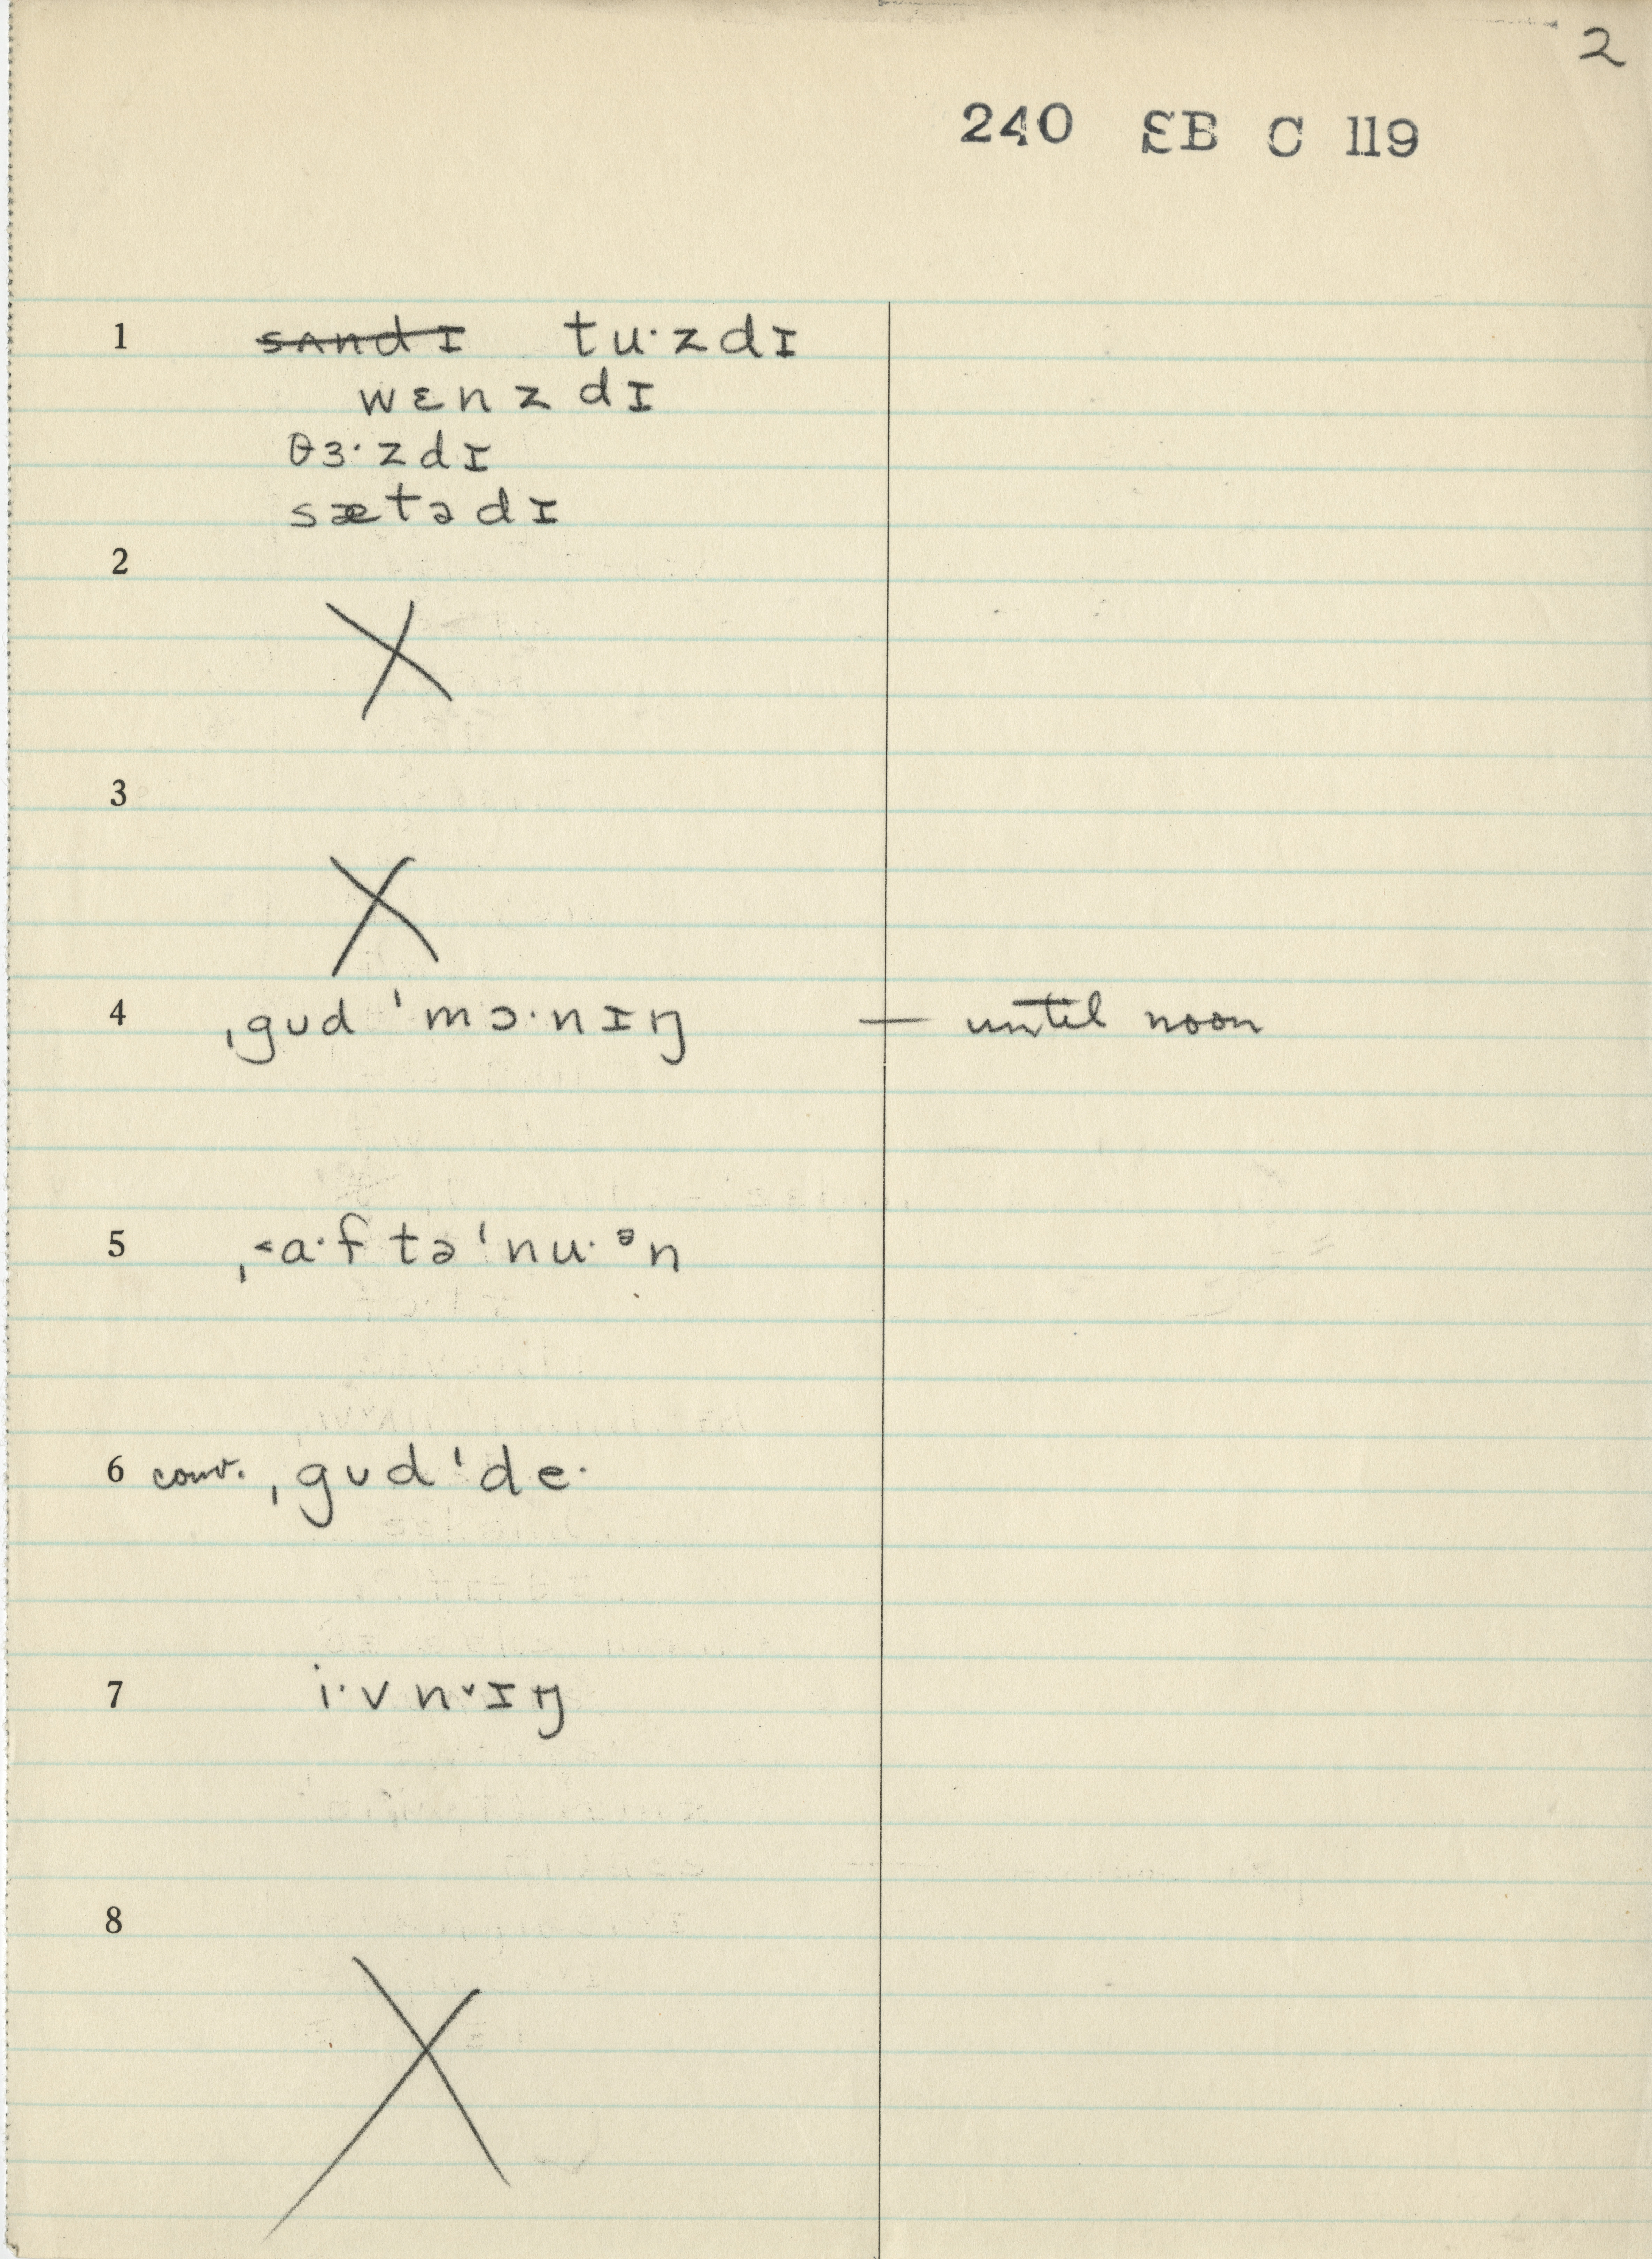 2
240 EB C 119
1 sʌndɪ tu·zdɪ
wɛnzdɪ
θɜ·zdɪ
sætədɪ
2
X
3
X
4 ˌgud ˈmɔ·nɪŋ — until noon
5 ˌ˂a·ftəˈnu·ᵊn
6 conv. ˌgudˈde·
7 i·vnˇɪŋ
8
X